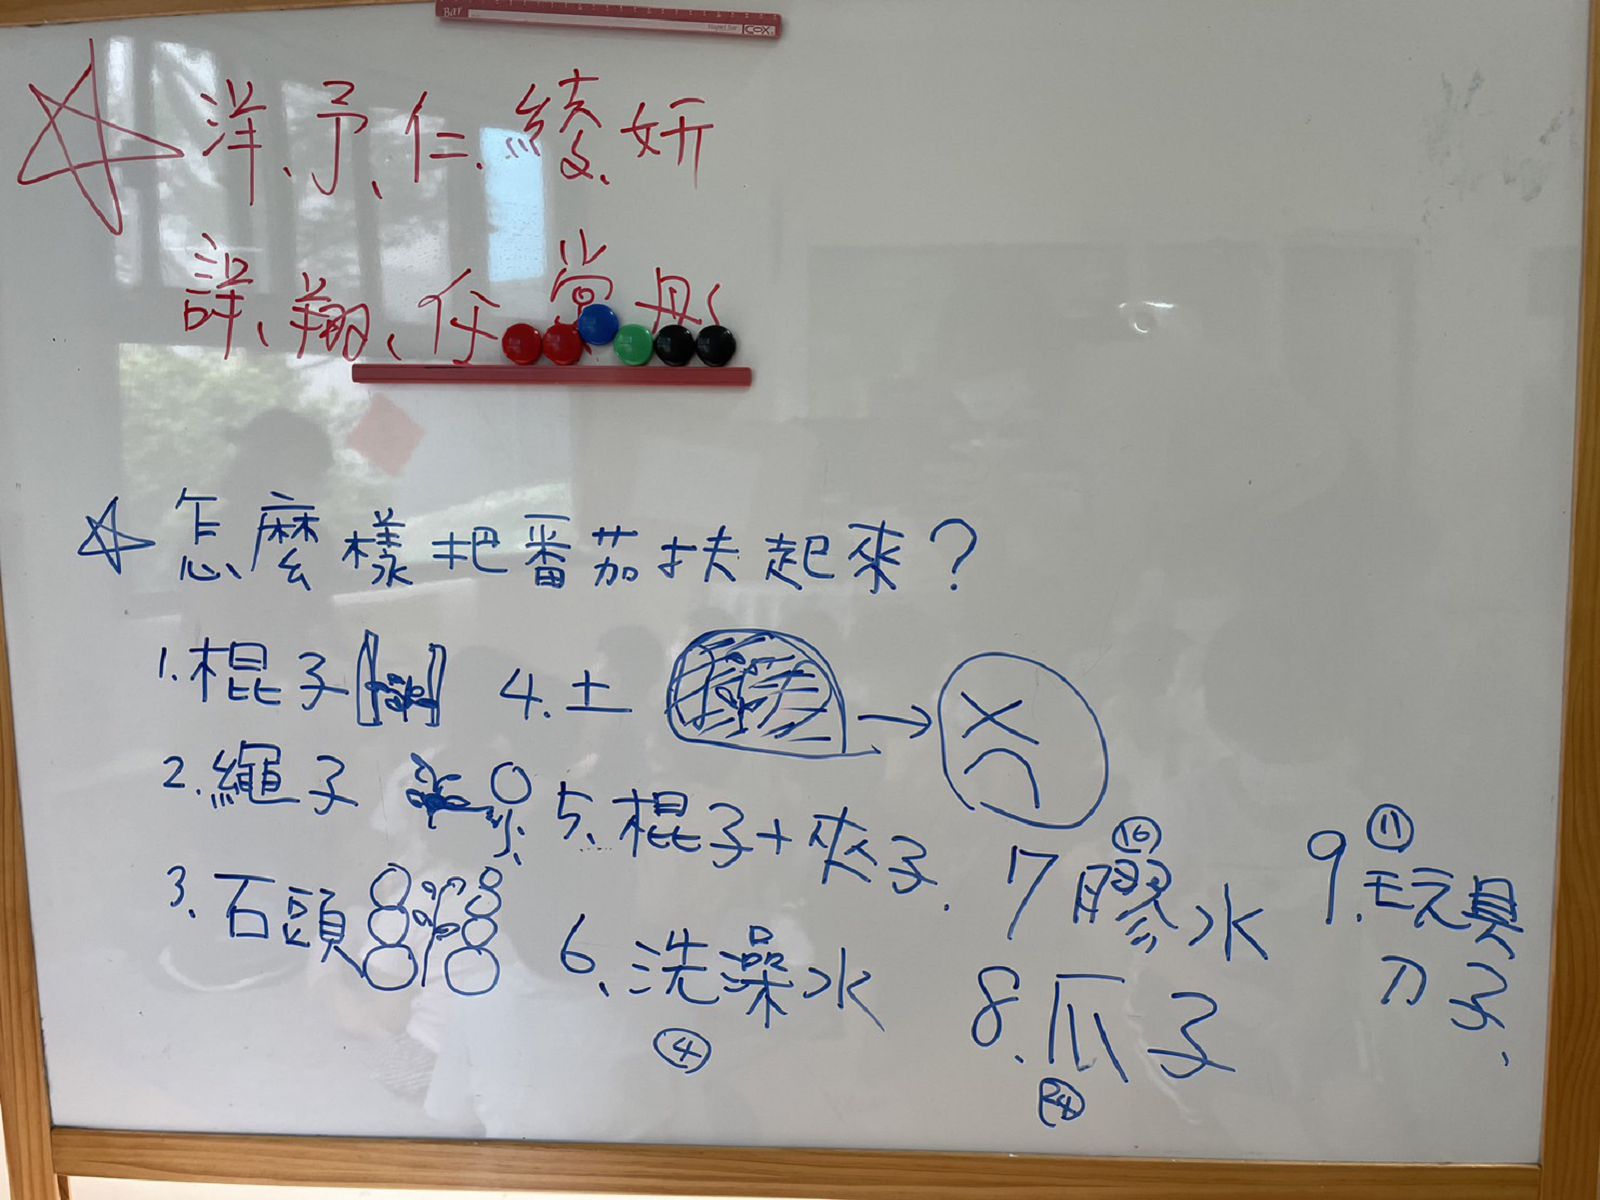 Bar
COX
☆ 洋、予、仁、綾、妍
詳、翔、仔 棠 彤
☆ 怎麼樣把番茄扶起來？
1. 棍子
4. 土
2. 繩子
5. 棍子+夾子.
3. 石頭
6. 洗澡水
④
7 膠水
⑯
8. 爪子
㉔
9. 玩具
⑪
刀子、